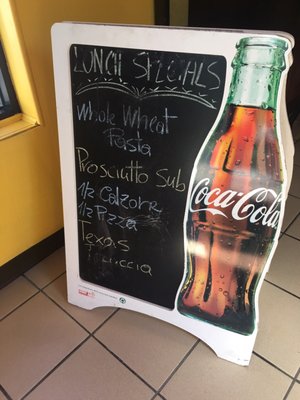 LUNCH SPECIALS
Whole Wheat
Pasta
Prosciutto Sub
1/2 Calzone
1/2 Pizza
Texas
Coca-Cola